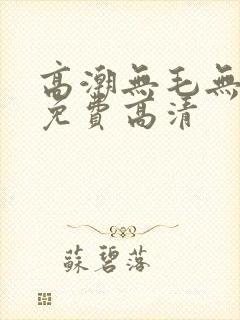 高潮無毛無
免費高清
蘇碧落